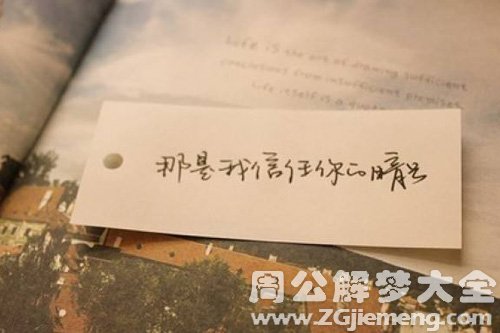 Life is the art of drawing sufficient
conclusions from insufficient premises
Life itself is a
那是我信任你的
周公解梦大全
www.ZGjiemeng.com